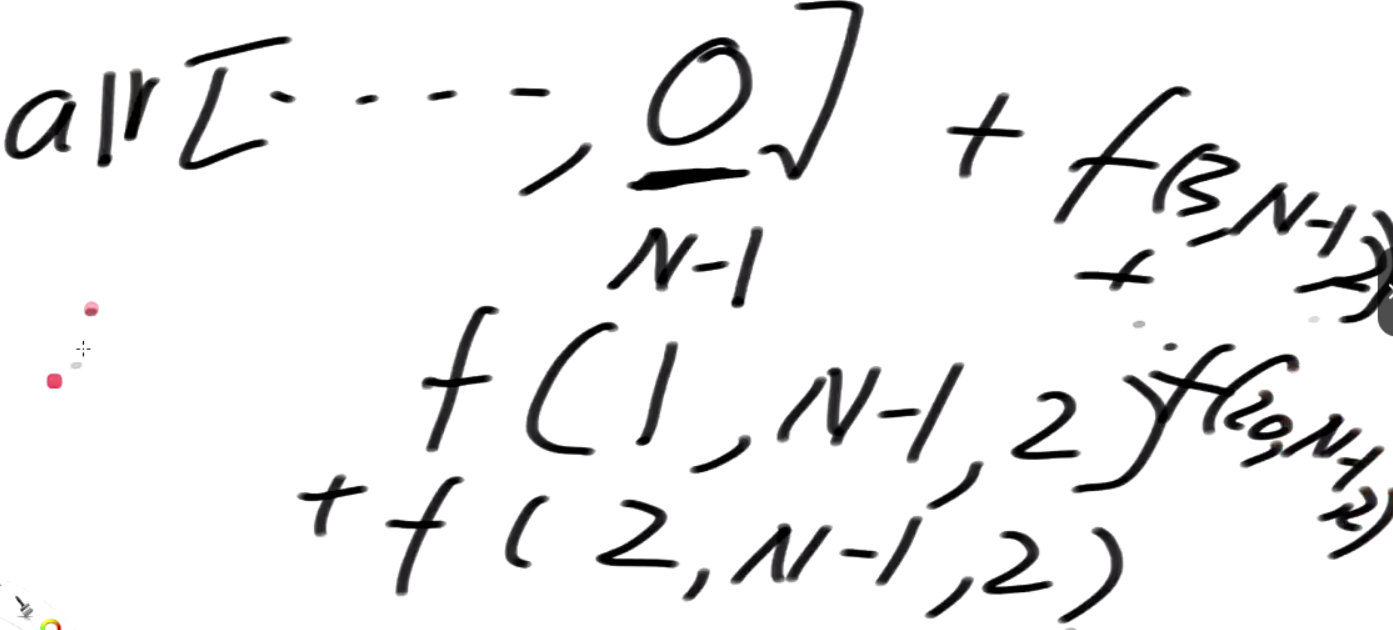 arr[- - - -, 0] + f(3, N-1, 2)
N-1 +
f(1, N-1, 2) f(20, N-1, 2)
+ f(2, N-1, 2)